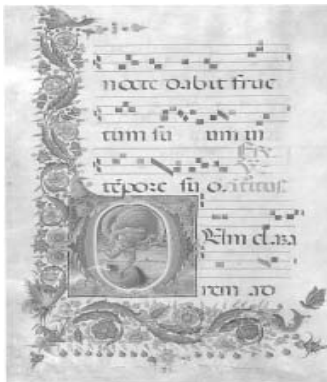 nocte dabit fruc
tum su um in
tēpore su o.
DUm clama
rem ad